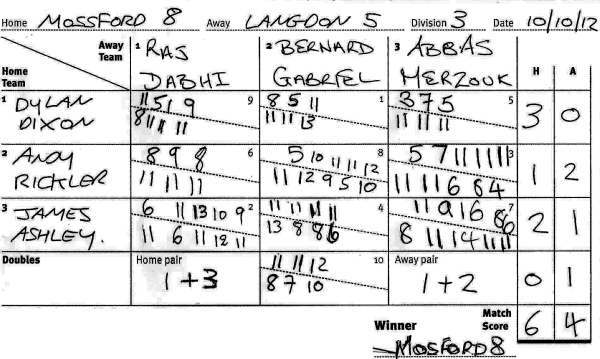 Home MOSSFORD 8 Away LANGDON 5 Division 3 Date 10/10/12
Away Team 1 RAS DABHI 2 BERNARD GABRIEL 3 ABBAS MERZOUK H A
Home Team
1 DYLAN DIXON 9 1 5 3 0
11 5 19 9
8 11 11 11
8 5 11
11 11 13
3 7 5
11 11 11
2 ANDY RICKLER 6 8 3 1 2
8 9 8
11 11 11
5 10 11 11 12
11 12 9 5 10
5 7 11 11 11
11 11 6 8 4
3 JAMES ASHLEY. 2 4 7 2 1
6 11 13 10 9
11 6 11 12 11
11 11 11 11
13 8 8 6
11 9 16 8 6
8 11 14 11 11
Doubles Home pair 10 Away pair 0 1
1+3
11 11 12
8 7 10
1+2
Winner Match Score 6 4
MOSFORD 8